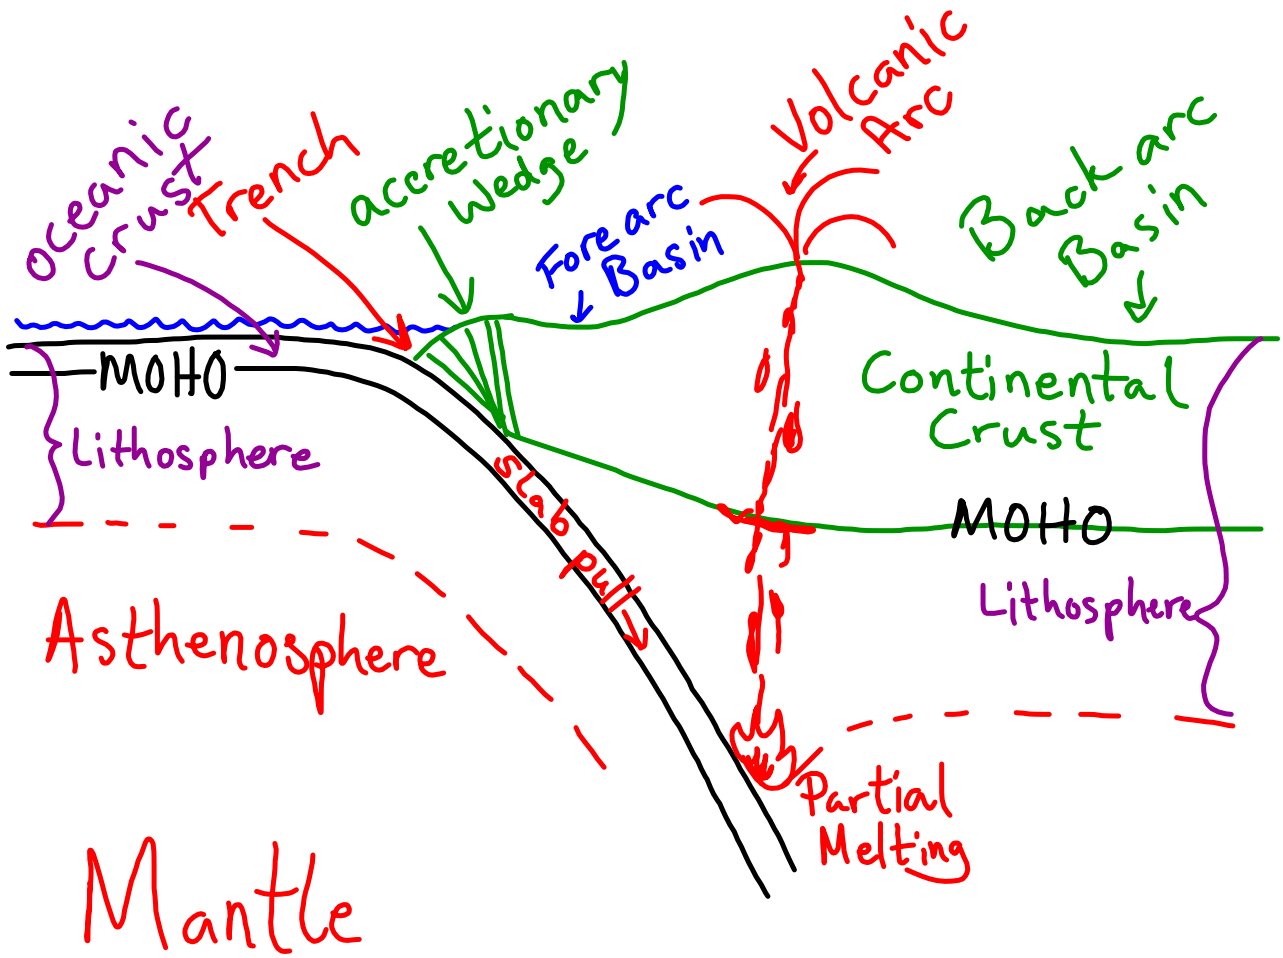 oceanic
crust
Trench
accretionary
wedge
Forearc
Basin
Volcanic
Arc
Back arc
Basin
MOHO
Lithosphere
Continental
Crust
slab pull
MOHO
Lithosphere
Asthenosphere
Partial
Melting
Mantle